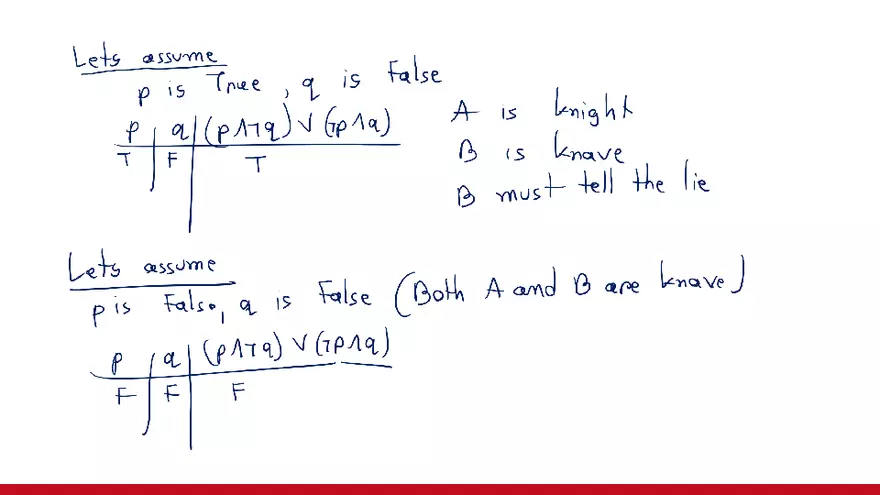 Lets assume
p is True, q is False
p q (p∧¬q) ∨ (¬p∧q)
T F T
A is knight
B is knave
B must tell the lie
Lets assume
p is False, q is False (Both A and B are knave)
p q (p∧¬q) ∨ (¬p∧q)
F F F